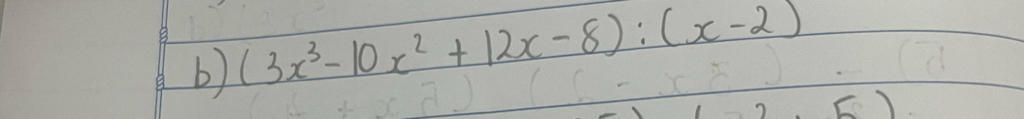 b) (3x³ - 10x² + 12x - 8) : (x - 2)